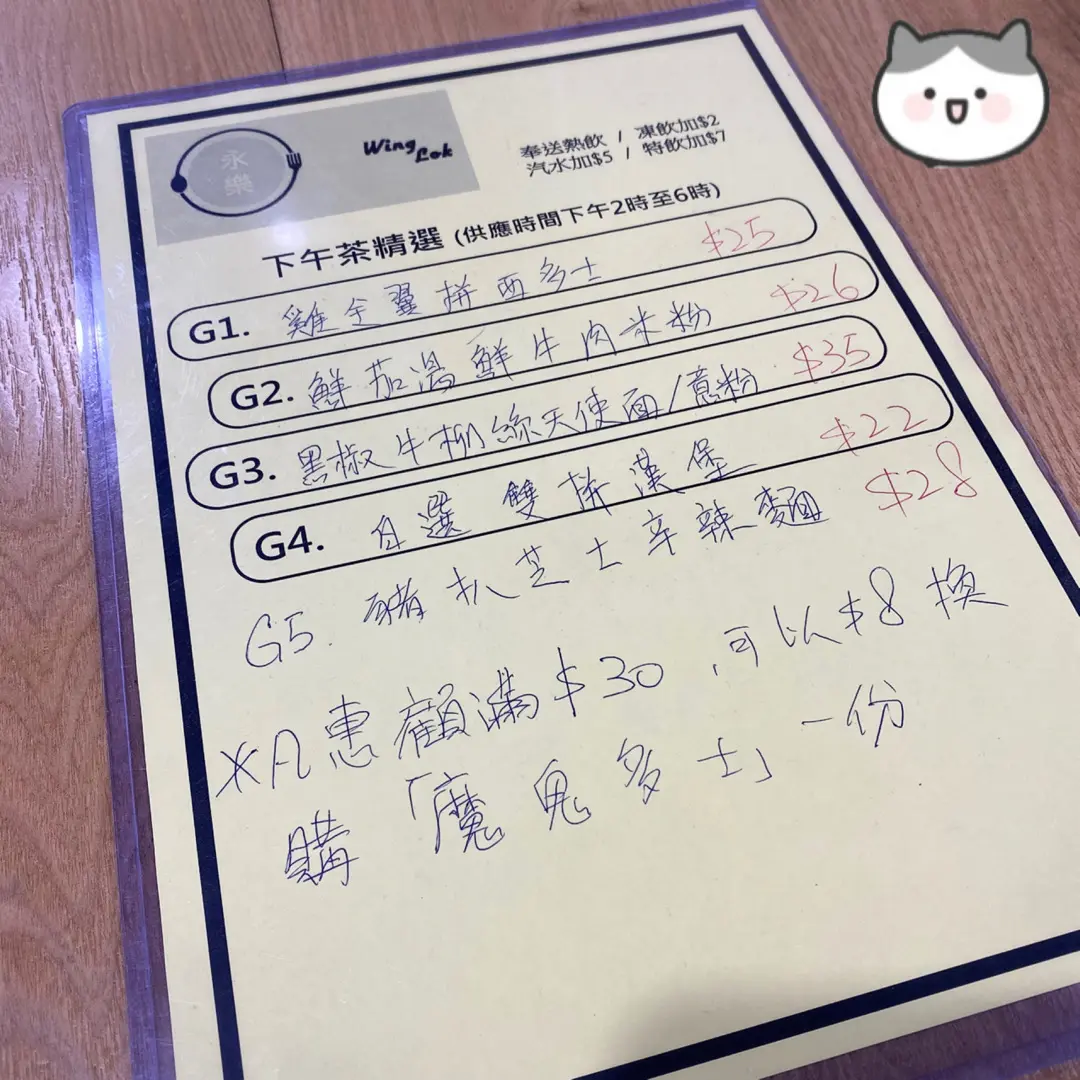 永樂
Wing Lok
奉送熱飲 / 凍飲加$2
汽水加$5 / 特飲加$7
下午茶精選 (供應時間下午2時至6時)
G1. 雞全翼拼西多士 $25
G2. 鮮茄湯鮮牛肉米粉 $26
G3. 黑椒牛柳絲天使面/意粉 $35
G4. 自選雙拼漢堡 $22
G5. 豬扒芝士辛辣麵 $28
※凡惠顧滿$30，可以$8換
購「魔鬼多士」一份